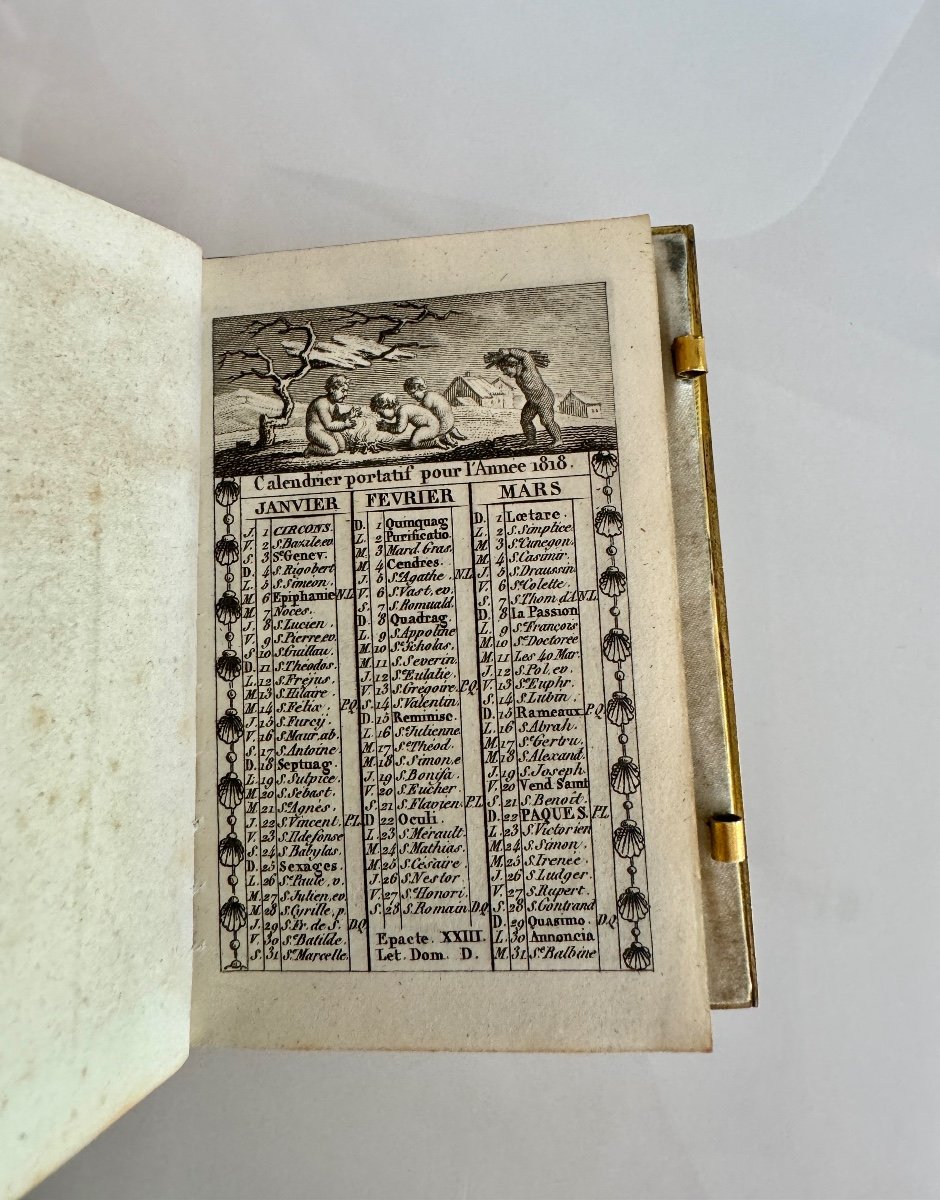 Calendrier portatif pour l'Annee 1818.
JANVIER
J. 1 CIRCONS.
V. 2 S. Bazile, ev.
S. 3 Sᵉ Genev.
D. 4 S. Rigobert
L. 5 S. Simeon.
M. 6 Epiphanie N.L.
M. 7 Noces.
J. 8 S. Lucien.
V. 9 S. Pierre, ev.
S. 10 S. Guillau.
D. 11 S. Théodos.
L. 12 S. Fréjus.
M. 13 S. Hilaire.
M. 14 S. Félix. P.Q.
J. 15 S. Furcij.
V. 16 S. Maur, ab.
S. 17 S. Antoine.
D. 18 Septuag.
L. 19 S. Sulpice.
M. 20 S. Sébast.
M. 21 Sᵉ Agnès.
J. 22 S. Vincent. P.L.
V. 23 S. Ildefonse
S. 24 S. Babylas.
D. 25 Sexages.
L. 26 Sᵉ Paule, v.
M. 27 S. Julien, ev.
M. 28 S. Cyrille, p.
J. 29 S. Fr. de S. D.Q.
V. 30 Sᵉ Batilde.
S. 31 Sᵉ Marcelle.
FEVRIER
D. 1 Quinquag
L. 2 Purificatio.
M. 3 Mard. Gras.
M. 4 Cendres.
J. 5 Sᵉ Agathe. N.L.
V. 6 S. Vast, ev.
S. 7 S. Romuald.
D. 8 Quadrag.
L. 9 S. Appoline
M. 10 Sᵉ Scholas.
M. 11 S. Severin.
J. 12 Sᵉ Eulalie.
V. 13 S. Grégoire. P.Q.
S. 14 S. Valentin.
D. 15 Reminisc.
L. 16 Sᵉ Julienne
M. 17 Sᵉ Théod.
M. 18 S. Simon, e
J. 19 S. Bonifa.
V. 20 S. Eucher
S. 21 S. Flavien. P.L.
D 22 Oculi.
L. 23 S. Mérault.
M. 24 S. Mathias.
M. 25 S. Césaire.
J. 26 S. Nestor.
V. 27 Sᵉ Honori.
S. 28 S. Romain. D.Q.
Epacte. XXIII.
Let. Dom. D.
MARS
D. 1 Lœtare.
L. 2 S. Simplice.
M. 3 Sᵉ Cunegon.
M. 4 S. Casimir.
J. 5 S. Draussin
V. 6 Sᵉ Colette.
S. 7 S. Thom. d'A. N.L.
D. 8 la Passion
L. 9 Sᵉ François
M. 10 Sᵉ Doctorée
M. 11 Les 40 Mar.
J. 12 S. Pol, ev.
V. 13 Sᵉ Euphr.
S. 14 S. Lubin.
D. 15 Rameaux. P.Q.
L. 16 S. Abrah.
M. 17 Sᵉ Gertru.
M. 18 S. Alexand.
J. 19 S. Joseph.
V. 20 Vend. Saint
S. 21 S. Benoît.
D. 22 PAQUES. P.L.
L. 23 S. Victorien
M. 24 S. Simon.
M. 25 S. Irenée.
J. 26 S. Ludger.
V. 27 S. Rupert.
S. 28 S. Gontrand
D. 29 Quasimo. D.Q.
L. 30 Annoncia
M. 31 Sᵉ Balbine